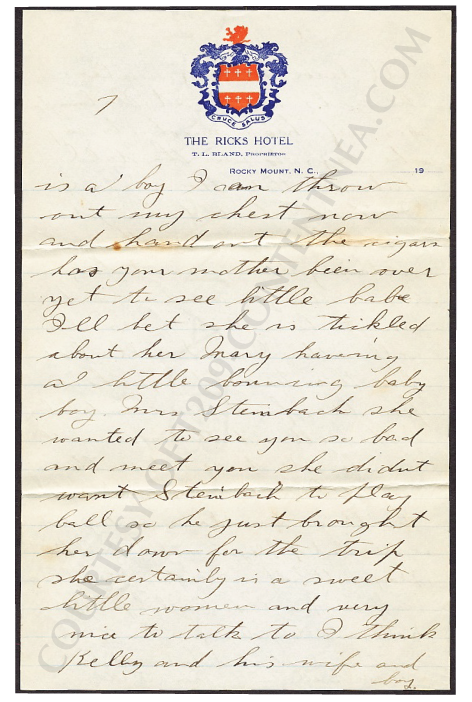 7
CRUCE SALUS
THE RICKS HOTEL
T. L. BLAND, PROPRIETOR
ROCKY MOUNT, N. C., 19
is a boy I can throw
out my chest now
and hand out the cigars
has your mother been over
yet to see little babe
I'll bet she is tickled
about her Mary having
a little bouncing baby
boy. Mrs Steinbach she
wanted to see you so bad
and meet you she didnt
want Steinbach to play
ball so he just brought
her down for the trip
she certainly is a sweet
little women and very
nice to talk to I think
Kelly and his wife and
boy.
COURTESY OF T209-CONTENTNEA.COM